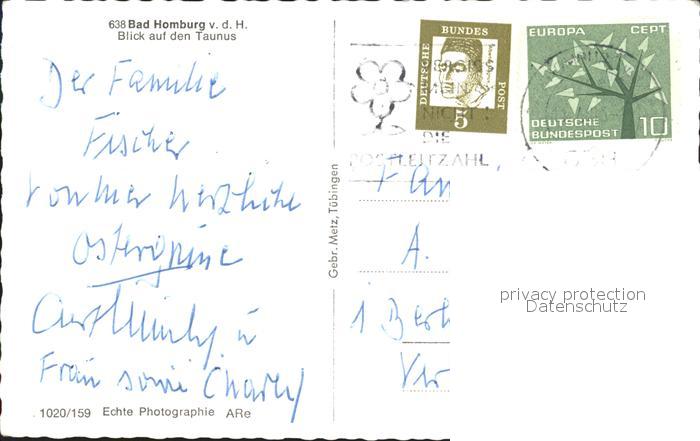 638 Bad Homburg v. d. H.
Blick auf den Taunus
Der Familie
Fischer
herzliche
Ostergrüsse
u
Frau sowie Charly
. 1020/159 Echte Photographie ARe
Gebr. Metz, Tübingen
DEUTSCHE BUNDES POST
5
EUROPA CEPT
DEUTSCHE
BUNDESPOST 10
NICHT
DIE
POSTLEITZAHL
Fam
A.
1 Berl
Ver
privacy protection
Datenschutz